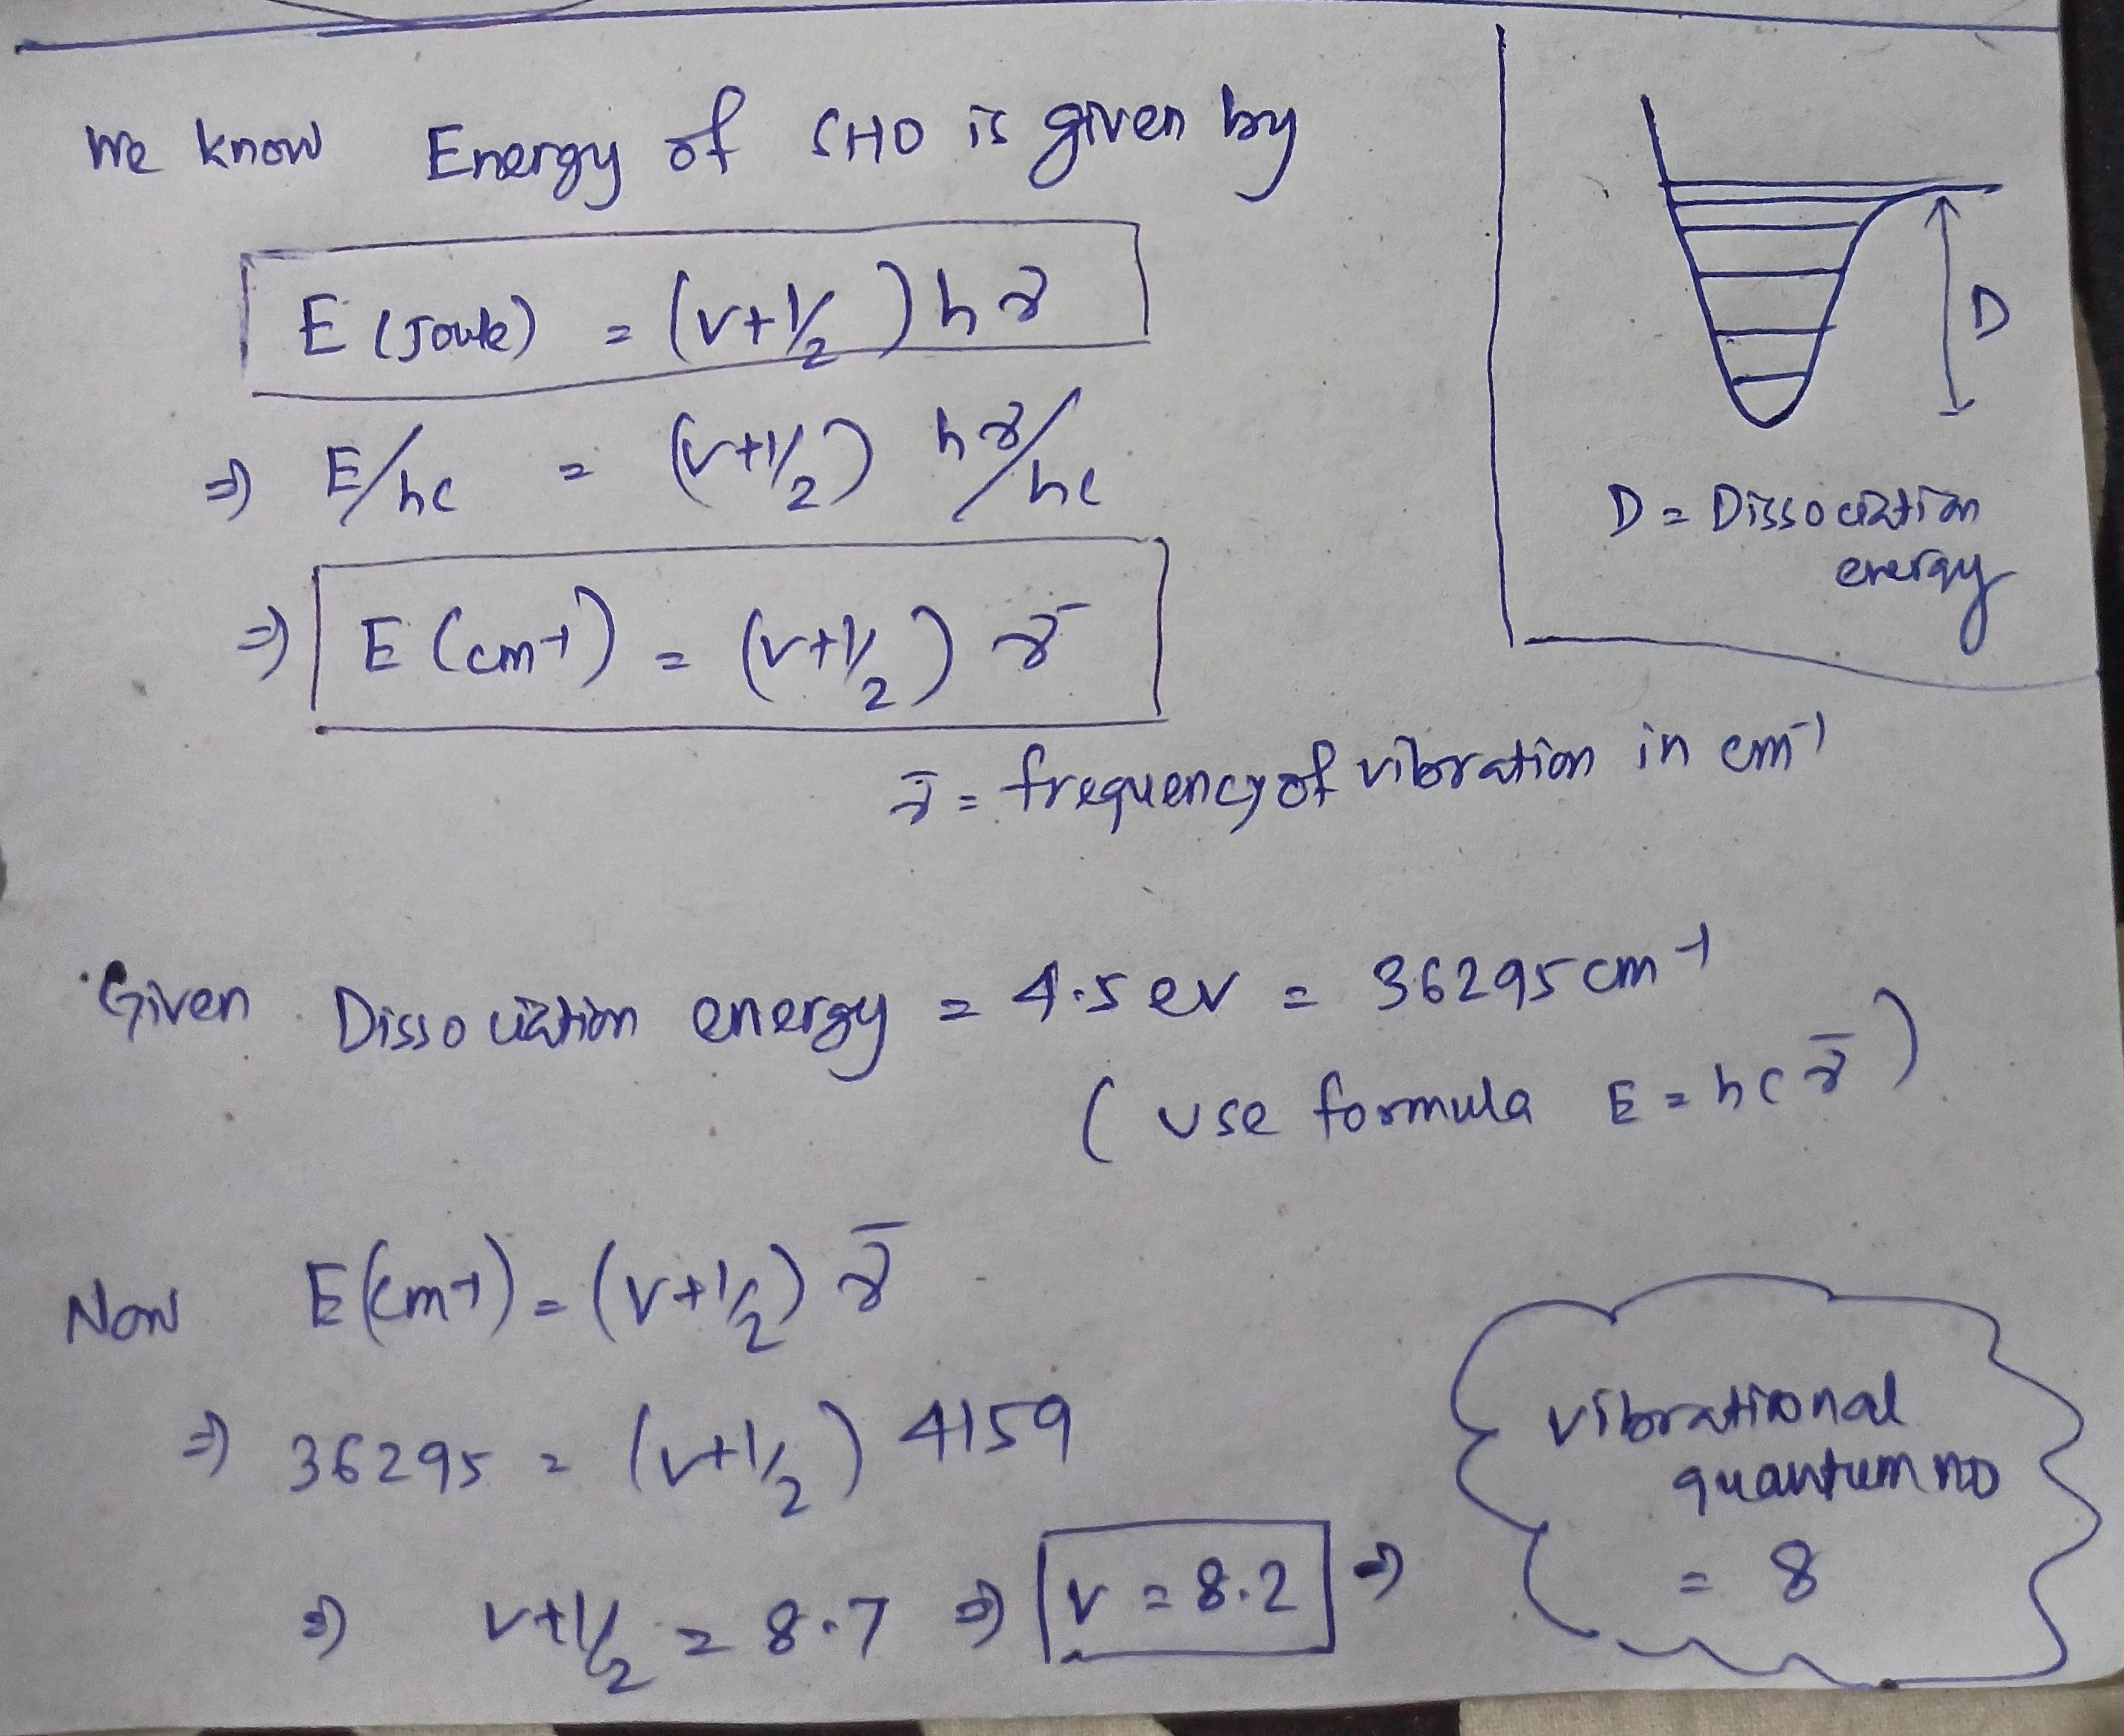 We know Energy of SHO is given by
E (Joule) = (v+1/2) hν
⇒ E/hc = (v+1/2) hν/hc
⇒ E (cm-1) = (v+1/2) ν̄
ν̄ = frequency of vibration in cm-1
D
D = Dissociation
energy
Given Dissociation energy = 4.5 ev = 36295 cm-1
( use formula E = hcν̄ )
Now E(cm-1) = (v+1/2) ν̄
⇒ 36295 = (v+1/2) 4159
⇒ v+1/2 = 8.7 ⇒ v = 8.2 ⇒
vibrational
quantum no
= 8